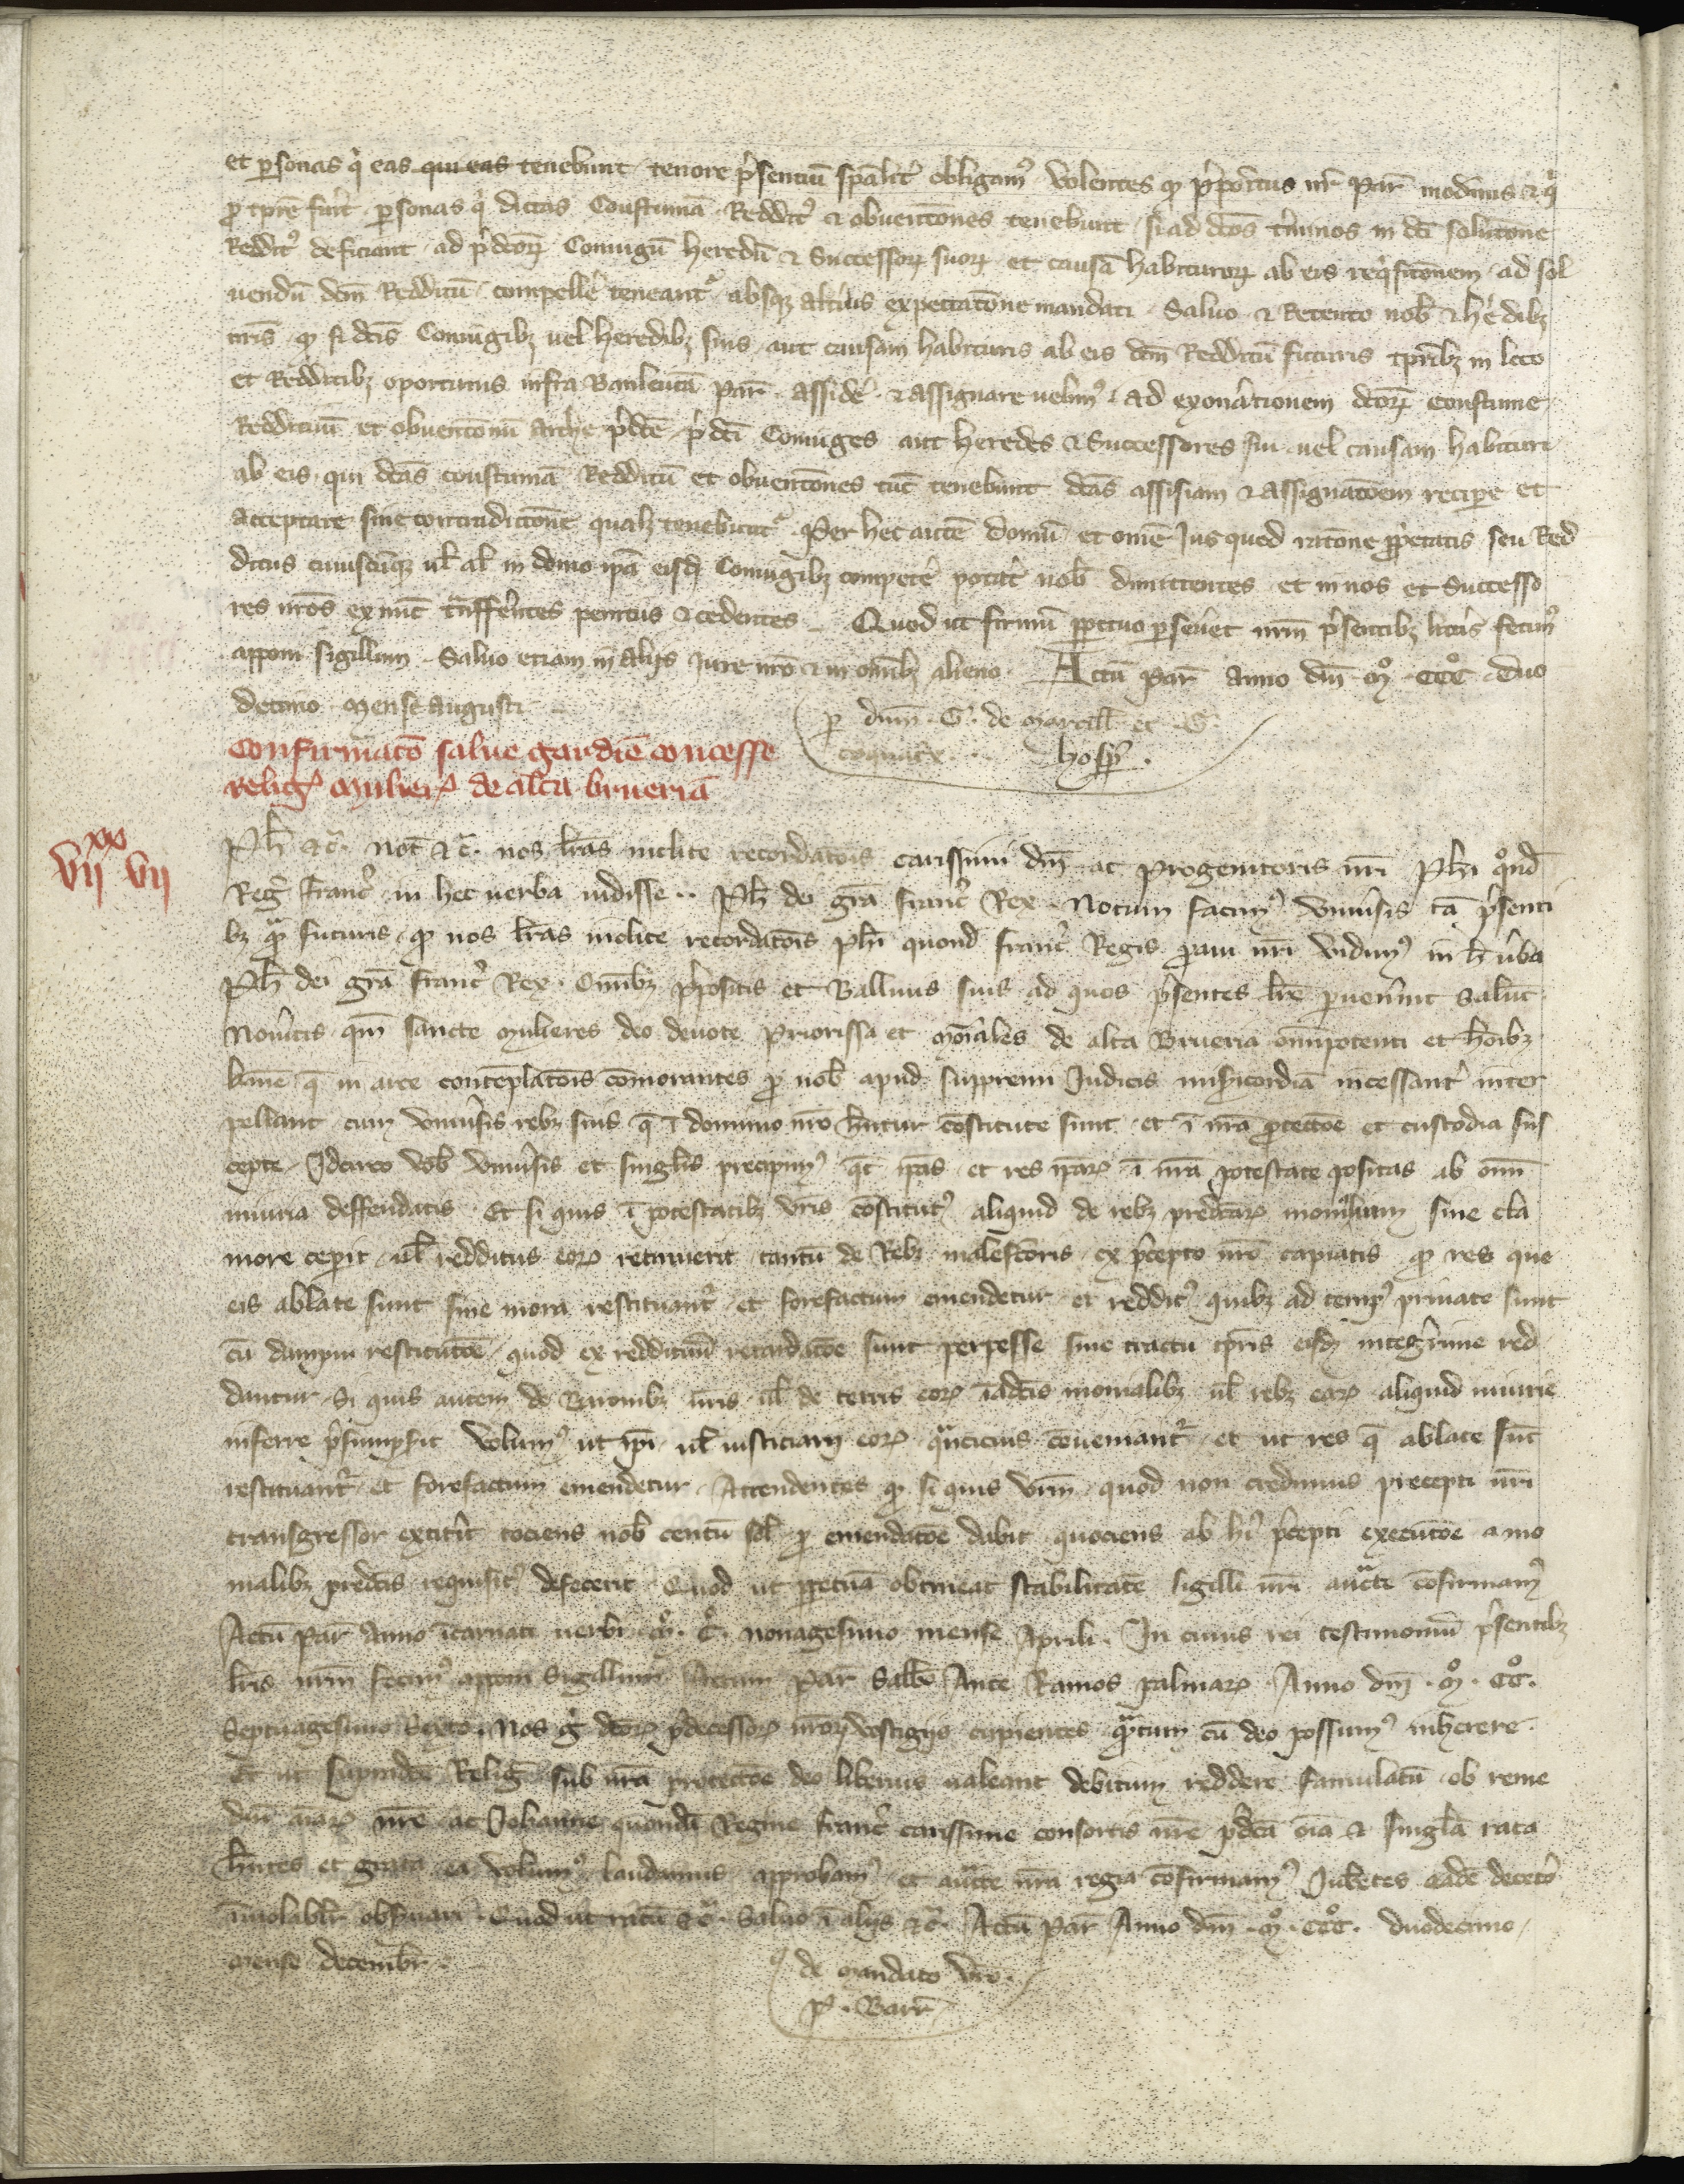 et ꝑsonas q̇ eas qui eas tenebunt tenore p̃sentiũ sp̃alit̃ obligamꝰ volentes ꝙ p̃positus nr̃ Par̃ modernus ⁊ q̇
ꝓ tꝑe fuit̃ ꝑsonas q̇ dictas Coustumã Reddit̃ ⁊ obuent̃ones tenebunt si ad dc̃os t̃minos in dc̃i solut̃one
Reddit̃ deficiant ad p̃dc̃oꝝ Coniugũ heredũ ⁊ Successoꝝ suoꝝ et causã habituroꝝ ab eis reqͥsit̃onem ad sol
uendũ dc̃m Redditũ compelle͛ teneantᷣ absqꝫ alteriꝰ expectat̃one mandati Saluo ⁊ Retento nob̃ ⁊ he͛dibꝫ
nr̃is ꝙ si dc̃is Coniugibꝫ uel heredibꝫ suis aut causam habituris ab eis dc̃m Redditũ futuris tꝑibꝫ in loco
et Redditibꝫ oportunis infra Banleucã Par̃ asside͛ ⁊ assignare uelimꝰ ad exon͛ationem dc̃oꝝ coustume
Reddituũ et obuent̃onũ arche p̃dc̃e p̃dc̃i Coniuges aut heredes ⁊ Successores sui uel causam habituri
ab eis qui dc̃as coustumã Redditũ et obuent̃ones tũc tenebunt dc̃as assisiam ⁊ assignat̃oem reciꝑe et
acceptare sine contradict̃one qualꝫ tenebuntᷣ Per hec autẽ domũ et om̃e Jus quod rat̃one ꝓp̃etatis seu Red
ditus cuiuscũqꝫ ul̃ al̃ in domo ip̃a eisd̃ Coniugibꝫ compete͛ potit̃ nob̃ dimittentes et in nos et Successo
res nr̃os ex nũc t̃nsfe͛ntes penitus ⁊ cedentes Quod ut firmũ ꝑpetuo ꝑseue͛t nr̃m p̃sentibꝫ litt̃is fecimꝰ
apponi sigillum Saluo etiam in alijs Jure nr̃o ⁊ in om̃ibꝫ alieno Actũ Par̃ anno dñi Mͦ CCCͦ duo
decimo Mense augusti
ꝑ dñm G. de Marcill̃ et G.
coquatx̃ hosp̃.
Confirmat̃o salue gardie concesse
Religꝰ mulierꝝ de alta brueria
xx
vij vij
Ph̃ ⁊c̃. not̃ ⁊c̃. nos lr̃as inclite recordat̃ois carissimi dñi ac Progenitoris nr̃i Ph̃i qͦnd̃
Reg̃ Franc̃ in hec uerba uidisse Ph̃ dei gr̃a Franc̃ Rex Notum facimꝰ vniu͛sis tã p̃senti
bꝫ qͣ̃ futuris ꝙ nos lr̃as inclite recordat̃ois Ph̃i quond̃ Franc̃ Regis ꝓaui nr̃i vidimꝰ in h̃ u͛ba
Ph̃ dei gr̃a Franc̃ Rex Om̃ibꝫ p̃positis et Balliuis suis ad quos p̃sentes lr̃e ꝑuen͛int Salut̃
Nou͛itis qm̃ sancte mulieres deo deuote Priorissa et mõiales de alta Brueria om̃ipotenti et ho̅ibꝫ
 q̃ in arce contemplat̃ois cõmorantes ꝓ nob̃ apud suppremi Judicis mis͛icordiã incessant̃ inter
pellant cum vniu͛sis rebꝫ suis q̃ ĩ dominio nr̃o hñtur cõstitute sunt et ĩ nr̃a ꝓtect̃oe et custodia sus
cepte Jdcirco vob̃ vniu͛sis et singul̃is precipimꝰ qt̃ ip̃as et res ip̃aꝝ ĩ nr̃a potestate positas ab om̃i
iniuria deffendatis Et si quis ĩ potestatibꝫ vr̃is cõstitutꝰ aliquid de rebꝫ predc̃aꝝ monialium sine cla
more cepit ul̃ redditus eoꝝ retinuerit tantũ de Rebꝫ malefc̃oris ex p̃cepto nr̃o capiatis ꝙ res que
eis ablate sunt sine mora restituantᷣ et forefactum emendetur et redditꝰ quibꝫ ad tempꝰ priuate sunt
cũ dampni restitut̃oe quod ex reddituũ retardat̃oe sunt perpesse sine tractu tꝑis eisd̃ integ͛rime red
dantur Si quis autem de Baronibꝫ nr̃is ul̃ de terris eoꝝ iãdc̃is monialibꝫ ul̃ rebꝫ eaꝝ aliquid iniurie
inferre p̃sumpsit volumꝰ ut ip̃i ul̃ iusticiam eoꝝ qͣ̃tociens cõueniantᷣ et ut res q̃ ablate sũt
restituantᷣ et forefactum emendetur Attendentes ꝙ si quis vr̃m quod non credimus precepti nr̃i
transgressor extit̃it tociens nob̃ centũ sol̃ ꝓ emendat̃oe dabit quociens ab hꝰ p̃cepti execut̃oe a mo
nialibꝫ predc̃is requisitꝰ defecerit Quod ut ꝑpetuã obtineat stabilitatẽ sigilli nr̃i auc̃te cõfirmamꝰ
Actũ Par̃ Anno ĩcarnati uerbi Mͦ. Cͦ. nonagesimo mense Aprili. In cuius rei testimoniũ p̃sentibꝫ
lr̃is nr̃m fecimꝰ apponi Sigillum Actum Par̃ Sabb̃o Ante Ramos palmaꝝ Anno dñi Mͦ. CCͦ.
Septuagesimo Sexto. Nos g̊ dc̃oꝝ p̃decessoꝝ nr̃oꝝ vestigijs cupientes qͣ̃tum cũ deo possumꝰ inherere.
Et ut supͣdc̃e Relig̃ sub nr̃a protect̃oe deo liberius ualeant debitum reddere famulatũ ob reme
diũ aĩaꝝ nr̃e ac Johanne quondã Regine Franc̃ carissime consortis nr̃e p̃dc̃a oĩa ⁊ singl̃a rata
hñtes et grata ea volumꝰ laudamus approbamꝰ et auc̃te nr̃a regia cõfirmamꝰ Jubẽtes eadẽ decet̃o
ĩuiolabilr̃ obs͛uari Quod ut ratũ ⁊c̃. Saluo ĩ alijs ⁊c̃. Actũ Par̃ Anno dñi Mͦ. CCCͦ. duodecimo
mense decembr̃.
de mandato vr̃o.
P. Barr̃